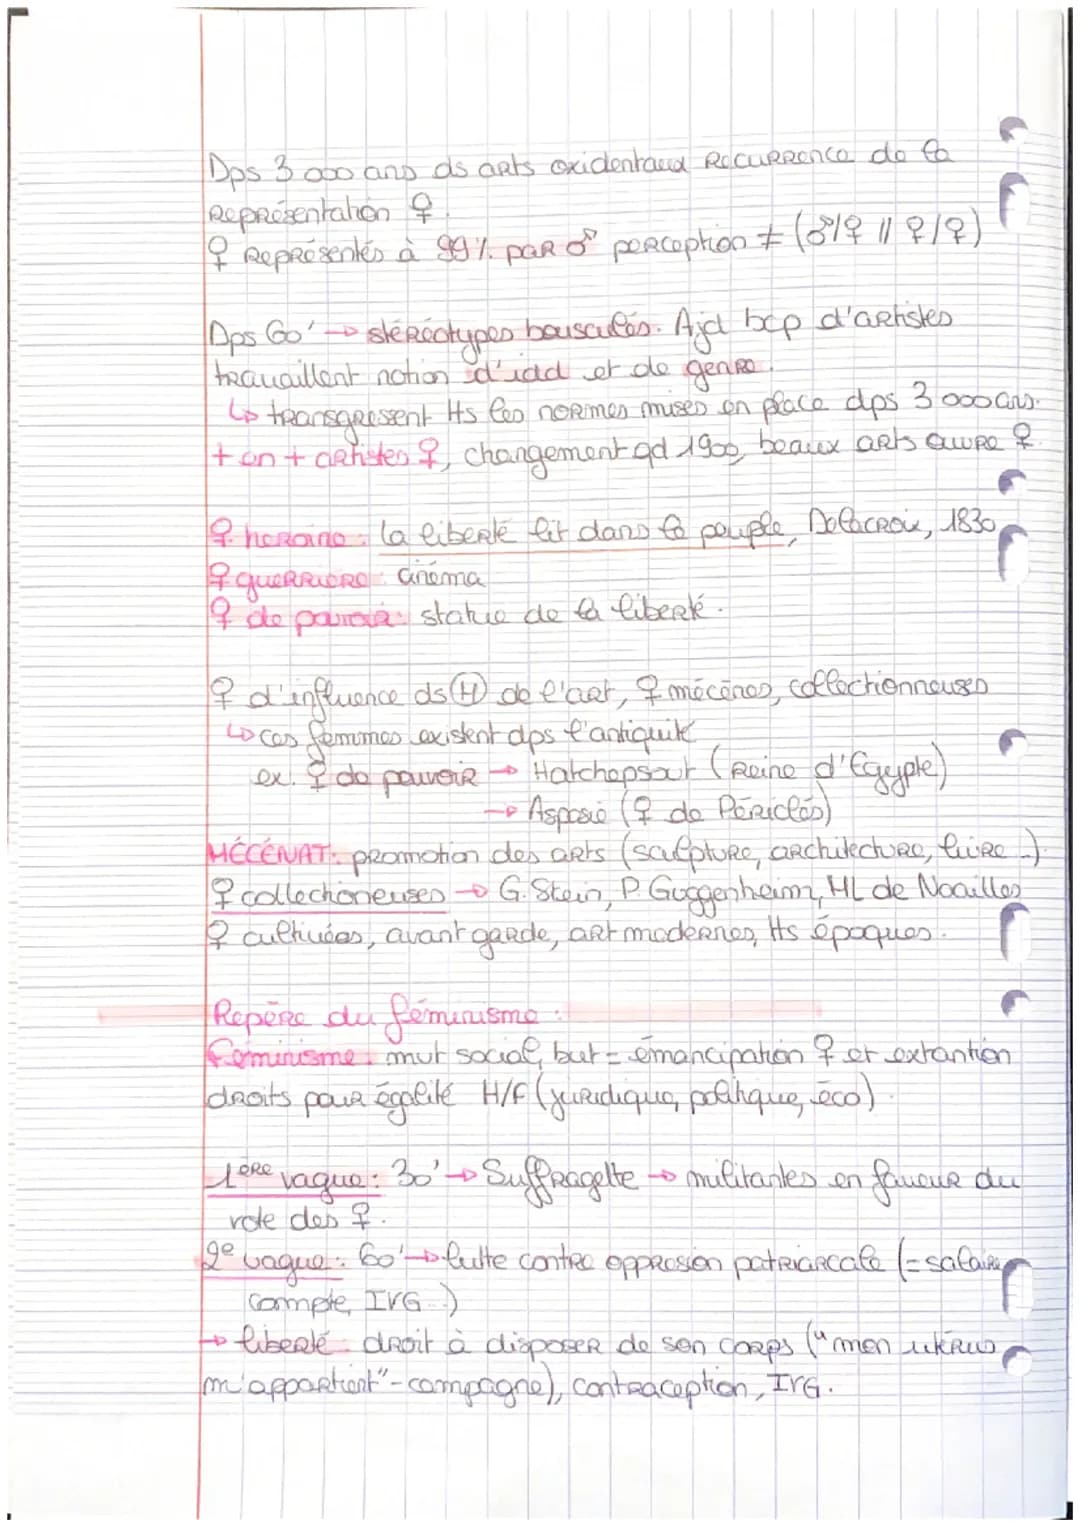 Dps 3 000 ans ds arts oxidentaud Récurrence de la
Représentation ♀
♀ Représentés à 99% par ♂ perception ≠ (♂/♀ // ♀/♀)
Dps 60' → stéréotypes bousculés. Ajd bcp d'artistes
travaillent notion d'idd et de genre.
↳ transgressent tts les normes mises en place dps 3 000 ans.
+ en + artistes ♀, changement qd 1900, beaux arts ouvre ♀
♀ heroine : La liberté lit dans le peuple, Delacroix, 1830
♀ guerriere : cinéma
♀ de pouvoir : statue de la liberté.
♀ d'influence ds (H) de l'art, ♀ mécènes, collectionneuses
↳ ces femmes existent dps l'antiquité
ex. ♀ de pouvoir → Hatchepsout (Reine d'Egypte)
→ Aspasie (♀ de Périclès)
MÉCÉNAT : promotion des arts (sculpture, architecture, livre ...)
♀ collectioneuses → G. Stein, P. Guggenheim, ML de Noailles
♀ cultivées, avant garde, art modernes, tts époques.
Repère du féminisme :
Feminisme : mvt social, but = émancipation ♀ et extantion
droits pour égalité H/F (juridique, politique, éco).
1ère vague : 30' → Suffragette → militantes en faveur du
vote des ♀.
2e vague : 60' → lutte contre oppression patriarcale (= salaire,
compte, IVG ..)
→ liberté : droit à disposer de son corps ("mon utérus
m'appartient" - campagne), contraception, IVG.